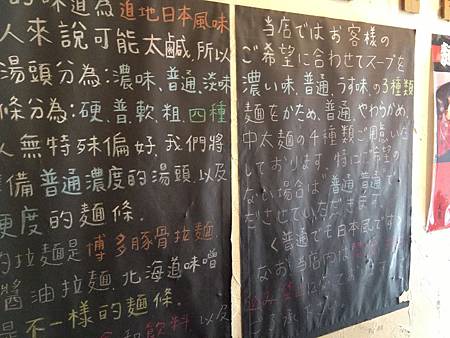 的味道為道地日本風味
人來說可能太鹹,所以
湯頭分為:濃味、普通、淡味
條分為:硬、普、軟、粗、四種
人無特殊偏好,我們將
準備普通濃度的湯頭,以及
硬度的麵條.
的拉麵是博多豚骨拉麵
醬油拉麵、北海道味噌
是不一樣的麵條.
和飲料,以及
当店ではお客様の
ご希望に合わせてスープを
濃い味、普通、うす味、の3種類
麺をかため、普通、やわらかめ、
中太麺の4種類ご用意いた
しております。特にご希望の
ない場合は普通、普通で
ださせていただきます。
(普通でも日本風です)
なお当店内は